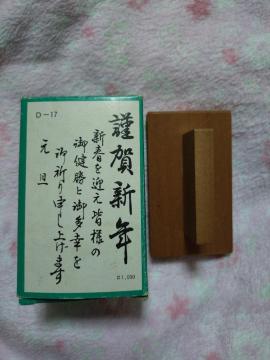 D-17
謹賀新年
新春を迎え皆様の
御健勝と御多幸を
御祈り申し上げます
元旦
¥1,000